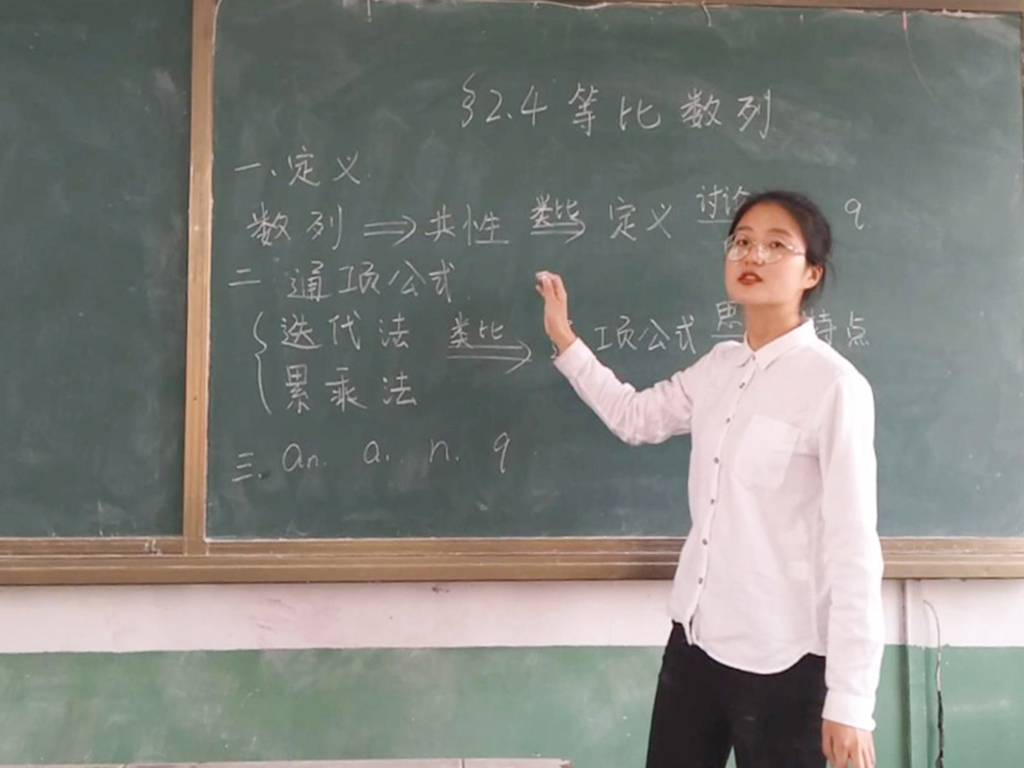 §2.4 等比数列
一、定义
数列 ⇒ 共性 类比⇒ 定义 讨论 q
二 通项公式
{迭代法 类比⇒ 项公式 思 特点
累乘法
三. an. a. n. q